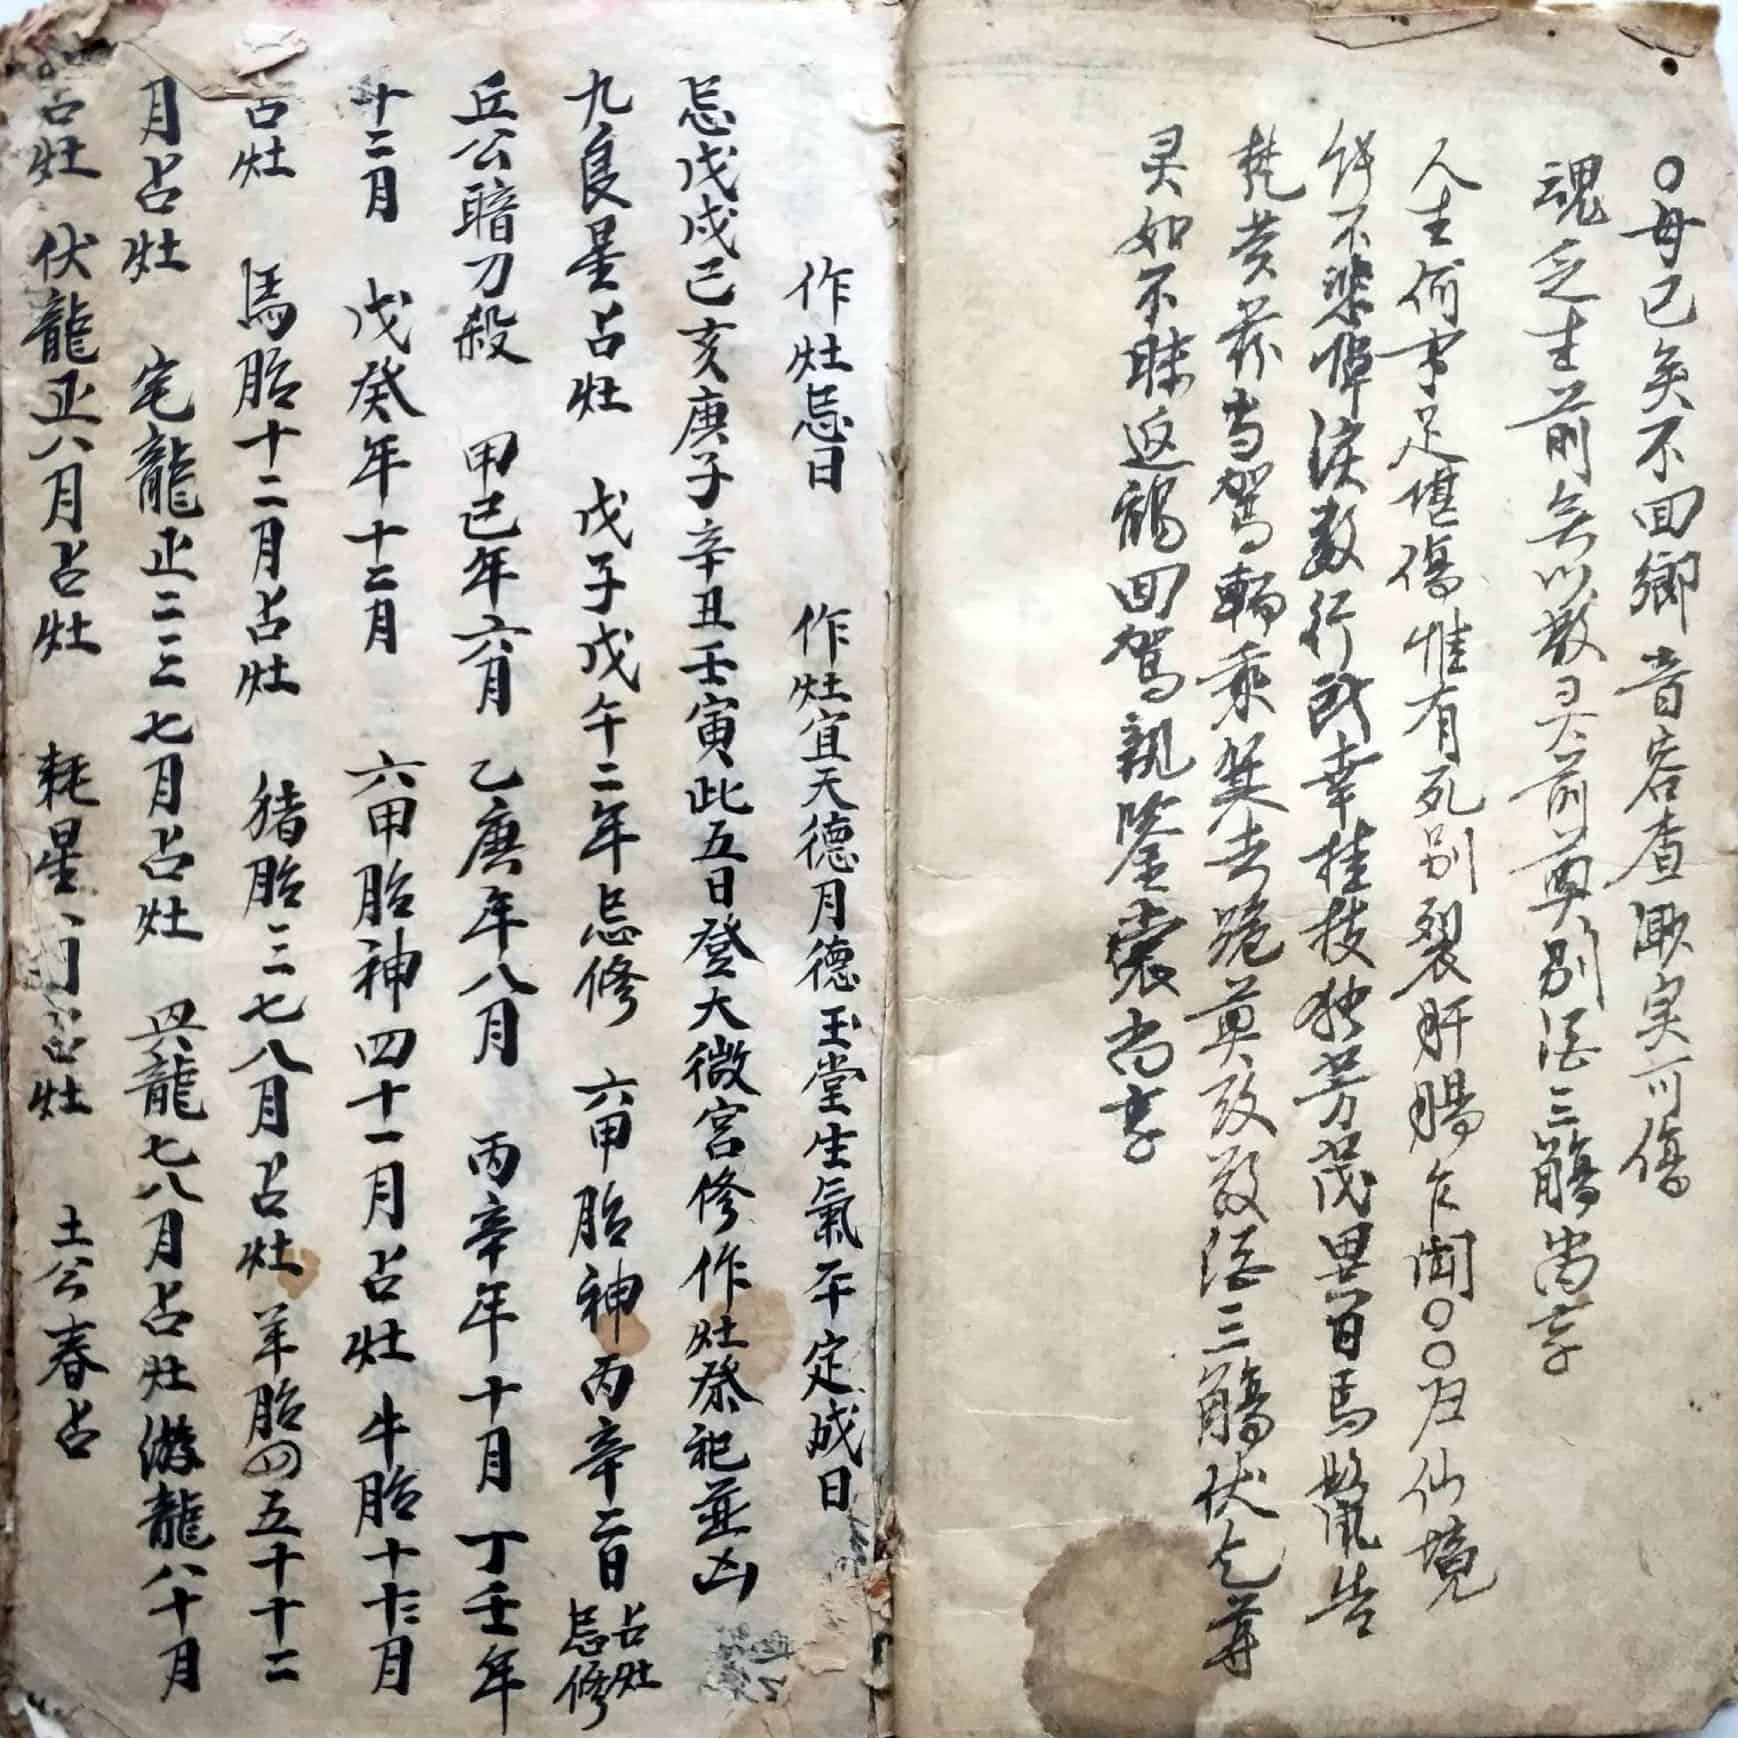 〇母已矣不回鄉音容查渺実可傷
魂乏生前無以敬灵前奠別酒三觴尚享
人生何事足堪傷惟有死別裂肝腸乍聞〇〇归仙境
不悲啼淚数行
兹当駕輀乘箕去跪奠致敬酒三觴伏乞尊
灵如不昧返鶴回駕親鑒裳尚享
作灶忌日　作灶宜天德月德玉堂生氣平定成日
忌戊戌己亥庚子辛丑壬寅此五日登大微宮修作灶祭祀並凶
九良星占灶　戊子戊午二年忌修　六甲胎神丙辛二日占灶忌修
丘公暗刀殺　甲己年六月　乙庚年八月　丙辛年十月　丁壬年
十二月　戊癸年十二月　六甲胎神四十一月占灶　牛胎十十二月
占灶　馬胎十二月占灶　猪胎三七八月占灶　羊胎四五十十二
月占灶　宅龍正二三七月占灶　龍七八月占灶　游龍八十月
占灶　伏龍正八月占灶　耗星八月占灶　土公春占